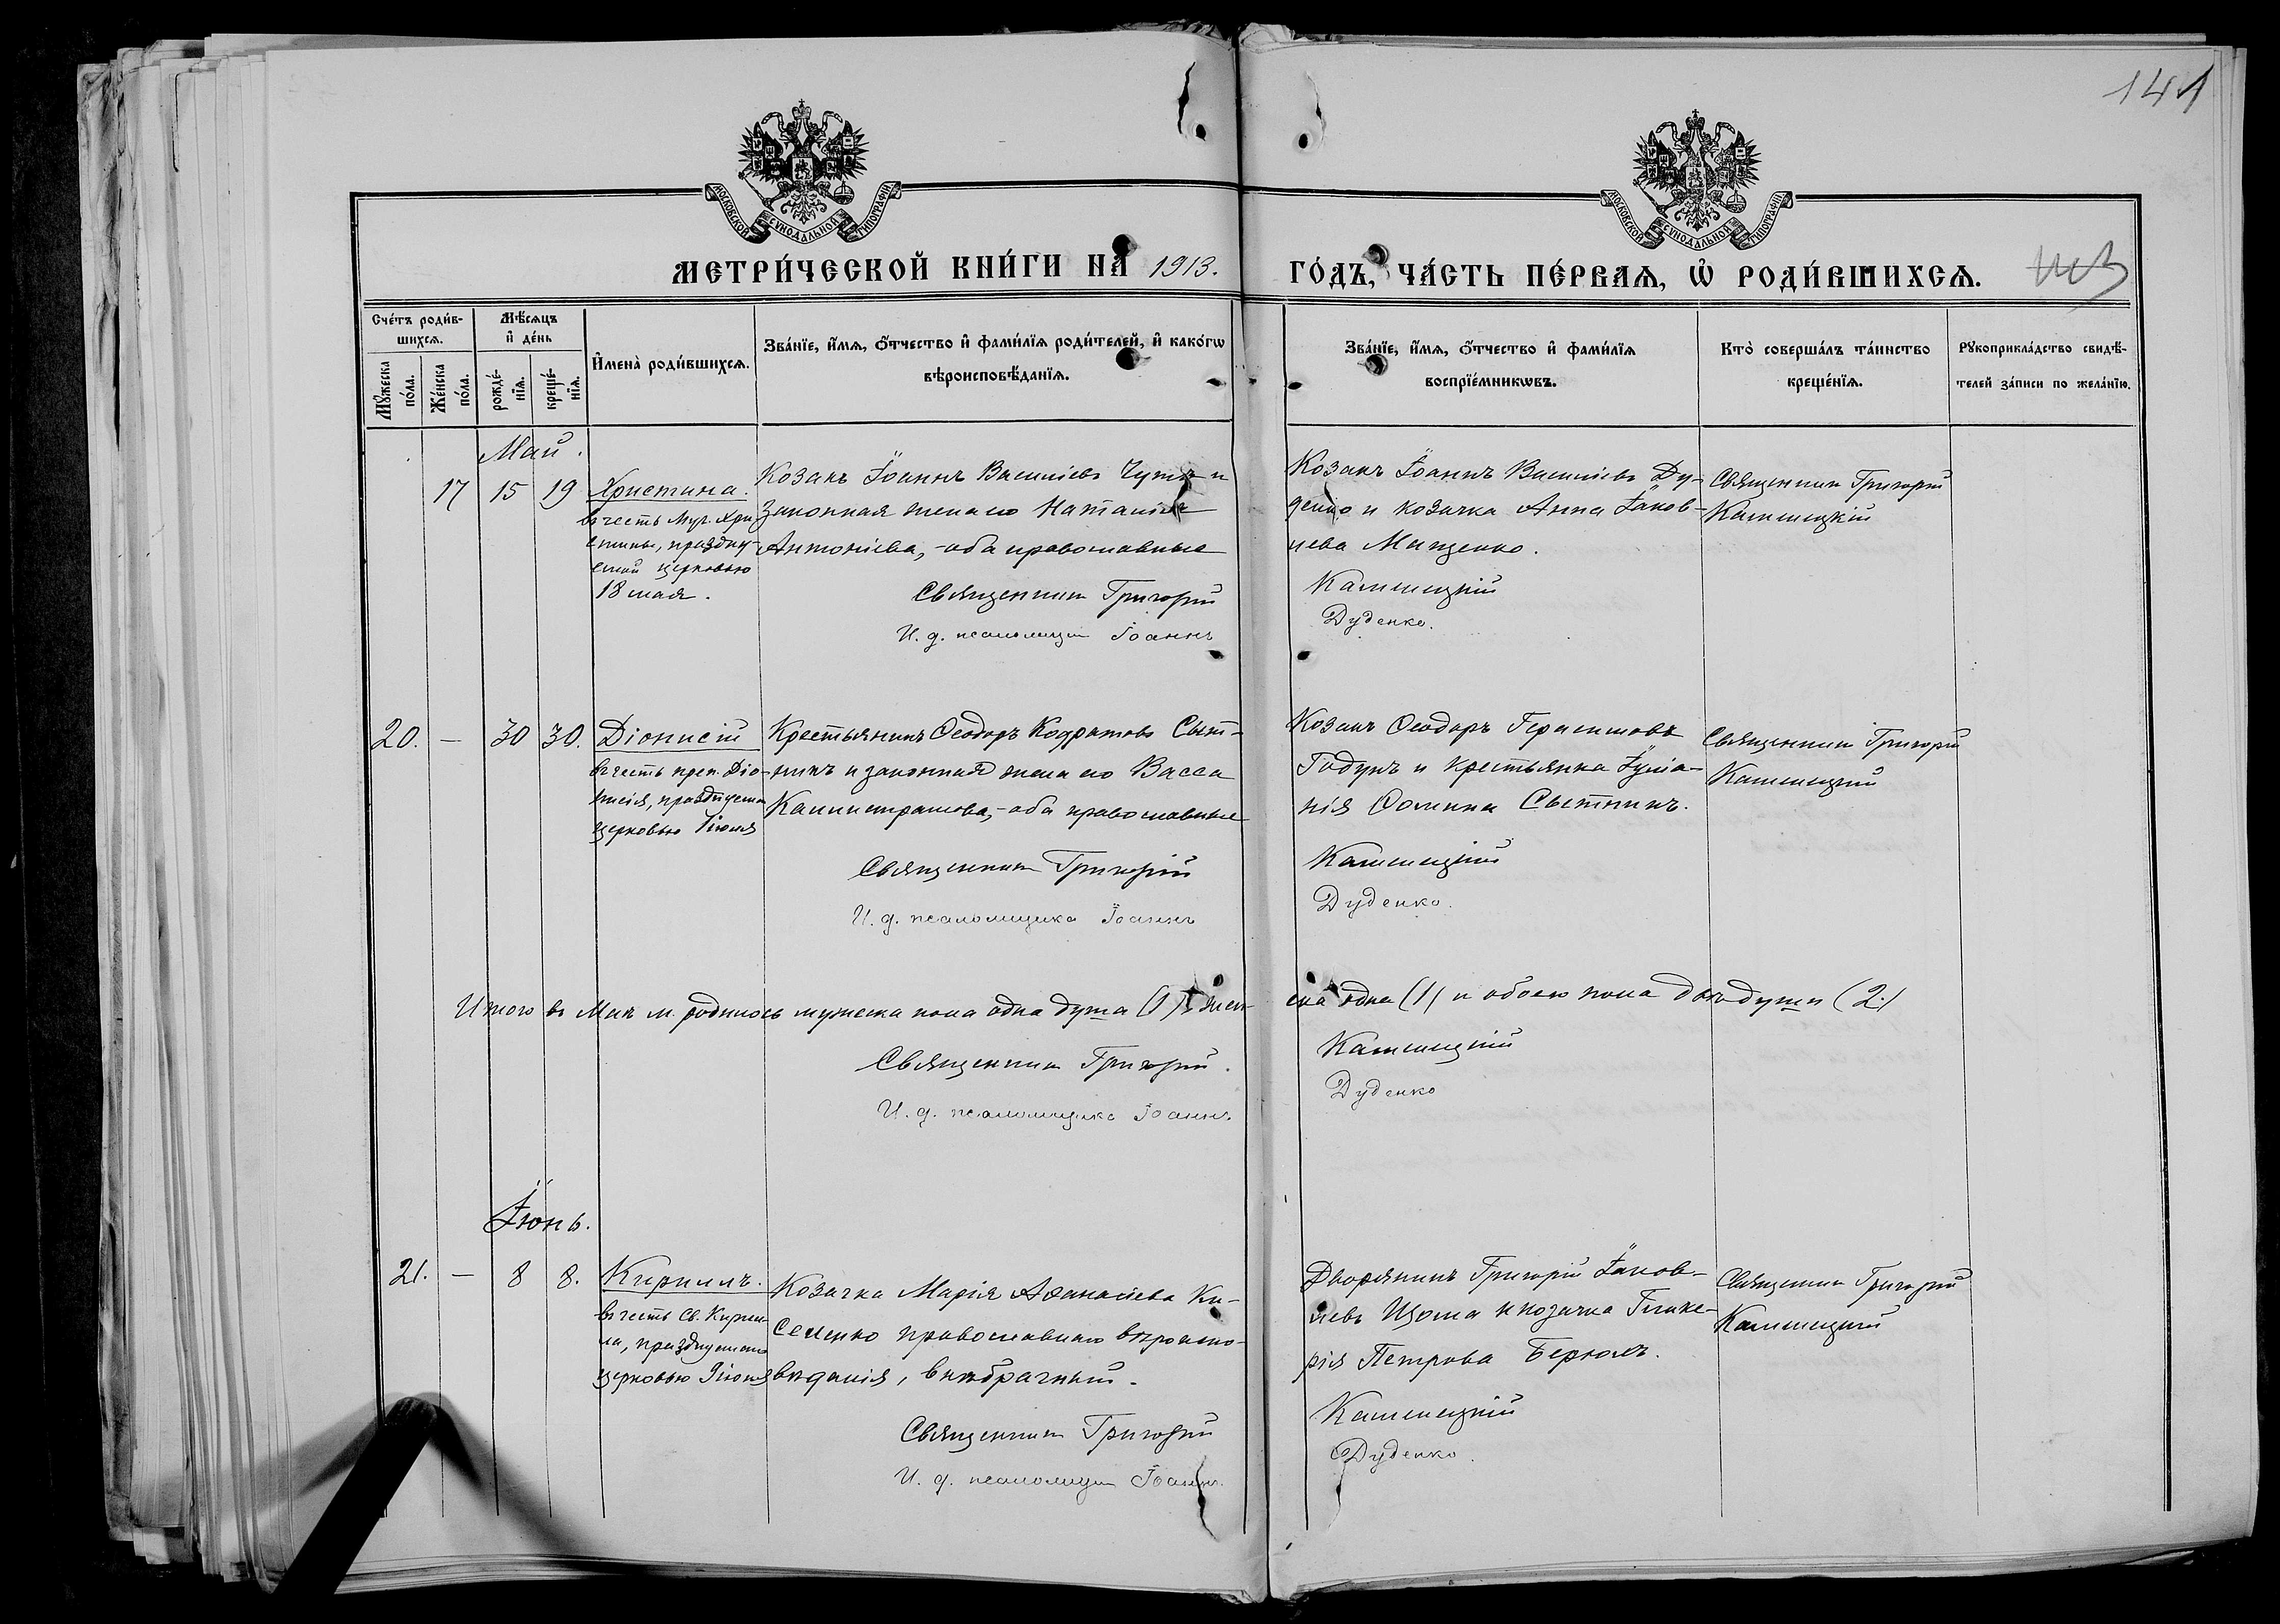 141
МОСКОВСКОЙ СѴНОДАЛЬНОЙ ТИПОГРАФІИ
МОСКОВСКОЙ СѴНОДАЛЬНОЙ ТИПОГРАФІИ
МЕТРИ́ЧЕСКОЙ КНИ́ГИ НА 1913. ГО́ДЪ, ЧА́СТЬ ПЕ́РВАѦ, Ѡ҆ РОДИ́ВШИХСѦ.
Сче́тъ роди́в-
шихсѧ.
Мѣ́сѧцъ
и҆ де́нь
Мꙋ́жеска
по́ла.
Же́нска
по́ла.
рожде́-
нїѧ.
креще́-
нїѧ.
И҆мена̀ роди́вшихсѧ.
Зва́нїе, и҆́мѧ, ѻ҆́тчество и҆ фами́лїѧ роди́телей, и҆ како́гѡ
вѣроисповѣ́данїѧ.
Зва́нїе, и҆́мѧ, ѻ҆́тчество и҆ фами́лїѧ
воспрїе́мникѡвъ.
Кто̀ соверша́лъ та́инство
креще́нїѧ.
Рꙋкоприкла́дство свидѣ́-
телей за́писи по жела́нїю.
Май.
17 15 19 Христина.
въ честь муч. Хри-
стины, праздну-
емой церковью
18 мая.
Козакъ Іоаннъ Васильевъ и
законная жена его Наталія
Антоніева, - оба православные
Священникъ Григорій
И. д. псаломщ Іоаннъ
Козакъ Іоаннъ Васильевъ Ду-
денко и козачка Анна Іаков-
лева Мищенко.
Камшицкій
Дуденко.
Священникъ Григорій
Камшицкій
20. — 30 30. Діонисій
въ честь преп. Діо-
нисія, празднуемаго
церковью 1 іюня
Крестьянинъ Ѳеодоръ Кодратовъ Сыт-
никъ и законная жена его Васса
Каллистратова, - оба православные
Священникъ Григорій
И. д. псаломщика Іоаннъ
Козакъ Ѳеодоръ Герасимовъ
Годунъ и крестьянка Іуліа-
нія Ѳомина Сытникъ.
Камшицкій
Дуденко.
Священникъ Григорій
Камшицкій
Итого въ Маѣ м. родилось мужеска пола одна душа (1) жен-
ска одна (1) и обоего пола двѣ души (2)
Священникъ Григорій.
И. д. псаломщика Іоаннъ
Камшицкій
Дуденко
Іюнь.
21. — 8 8. Кириллъ.
въ честь св. Кирил-
ла, празднуемаго
церковью 9 іюня
Козачка Марія Аѳанасіева Ки-
селенко православнаго вѣроиспо-
вѣданія, внѣбрачный.
Священникъ Григорій
И. д. псаломщ Іоаннъ.
Дворянинъ Григорій Іаков-
левъ Щома и козачка Глике-
рія Петрова
Камшицкій
Дуденко.
Священникъ Григорій
Камшицкій